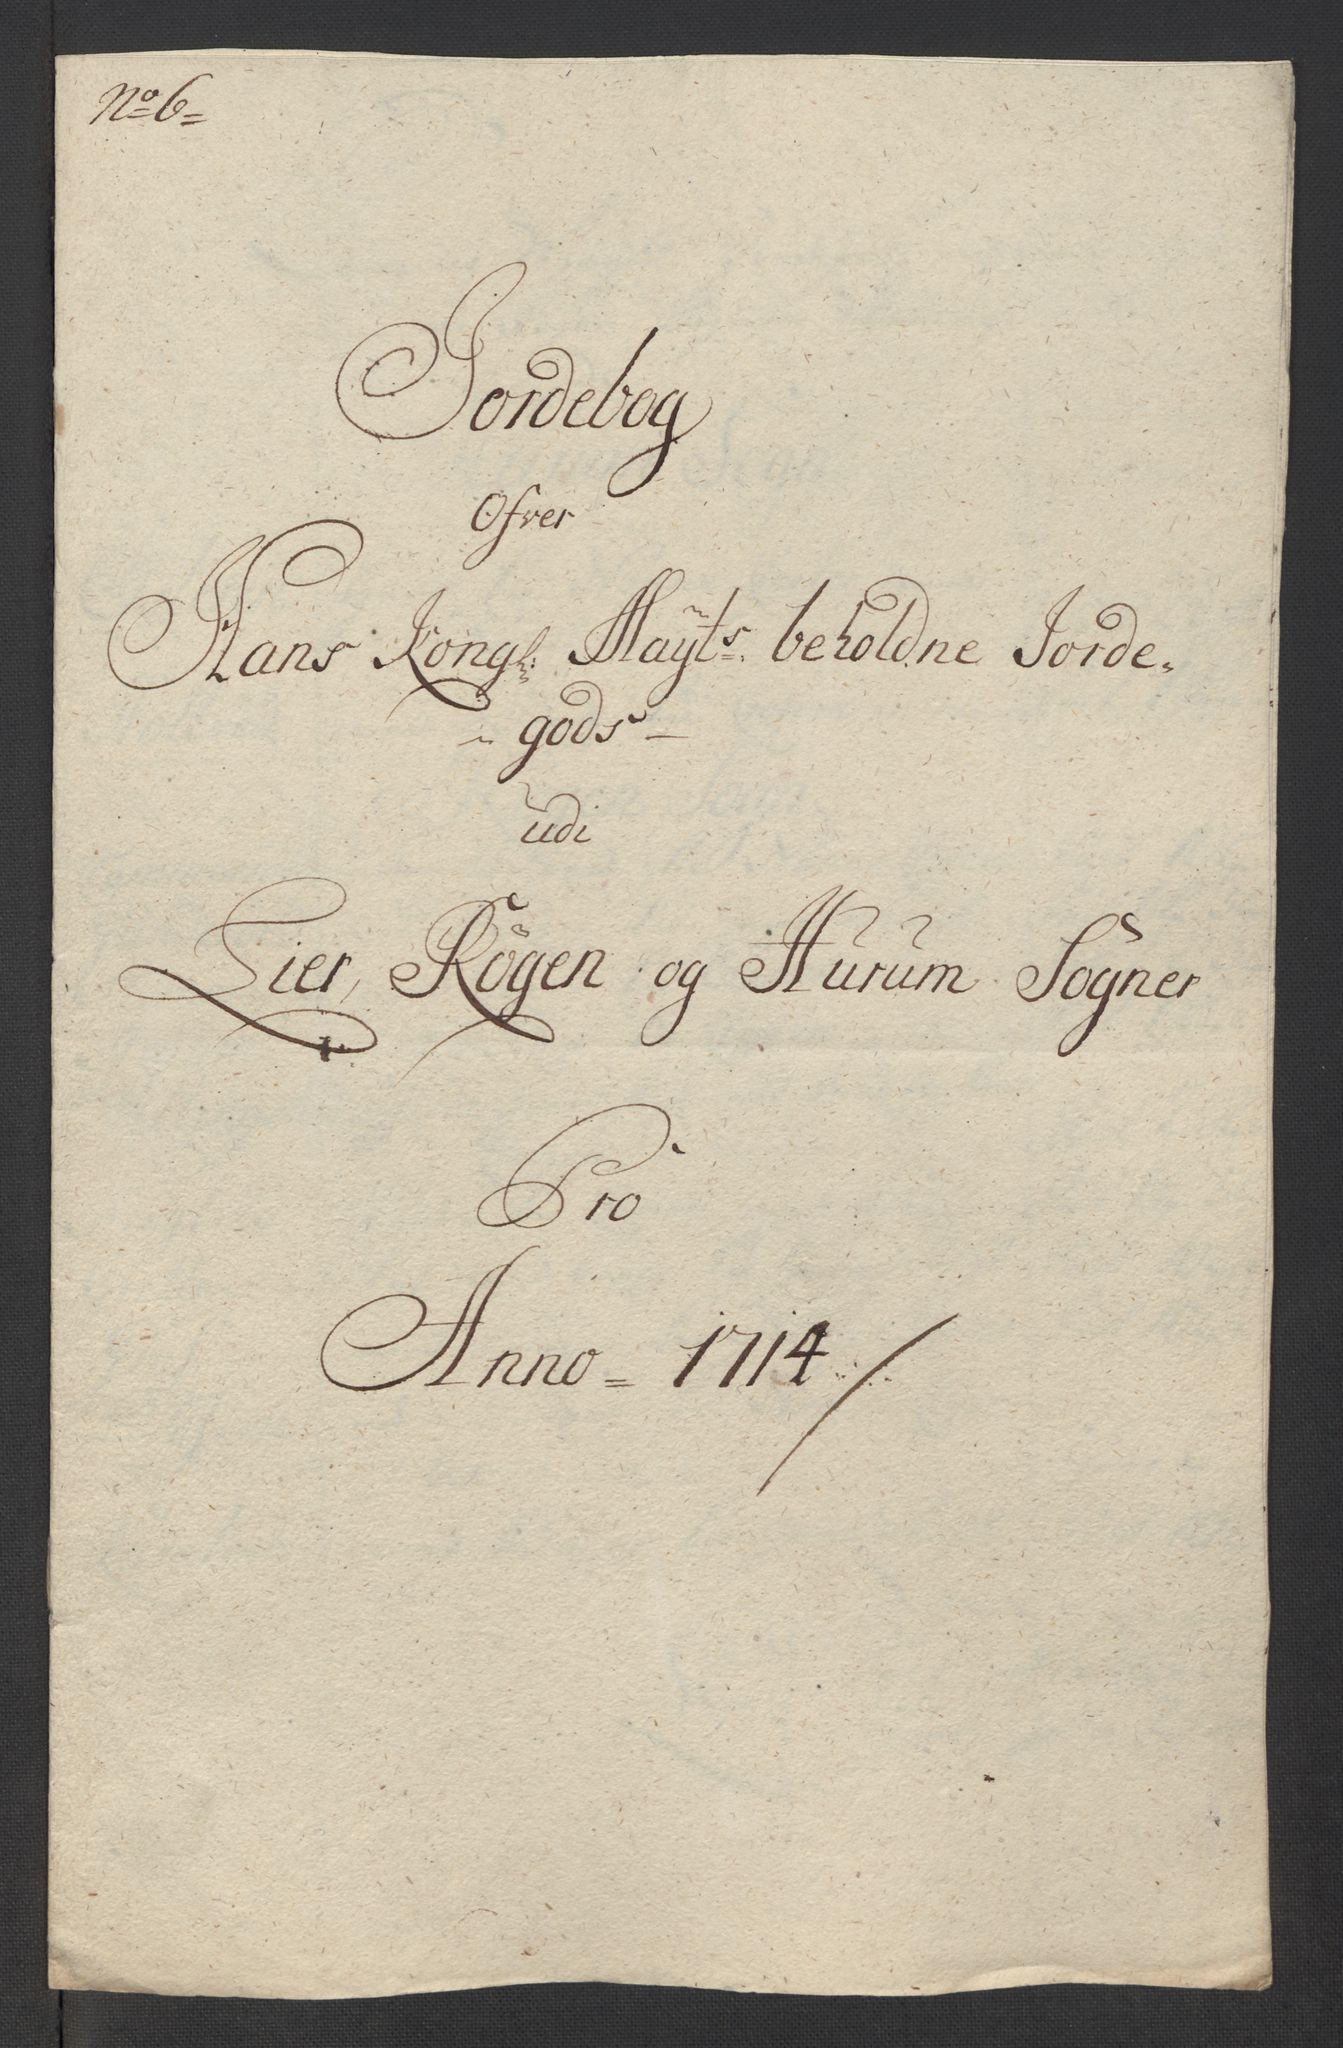 No 6
Jordebog
Ofver
Hans Kongl: Mayts: beholdne Jorde-
gods
udi
Lier, Røgen og Hurum Sogner
Pro
Anno 1714